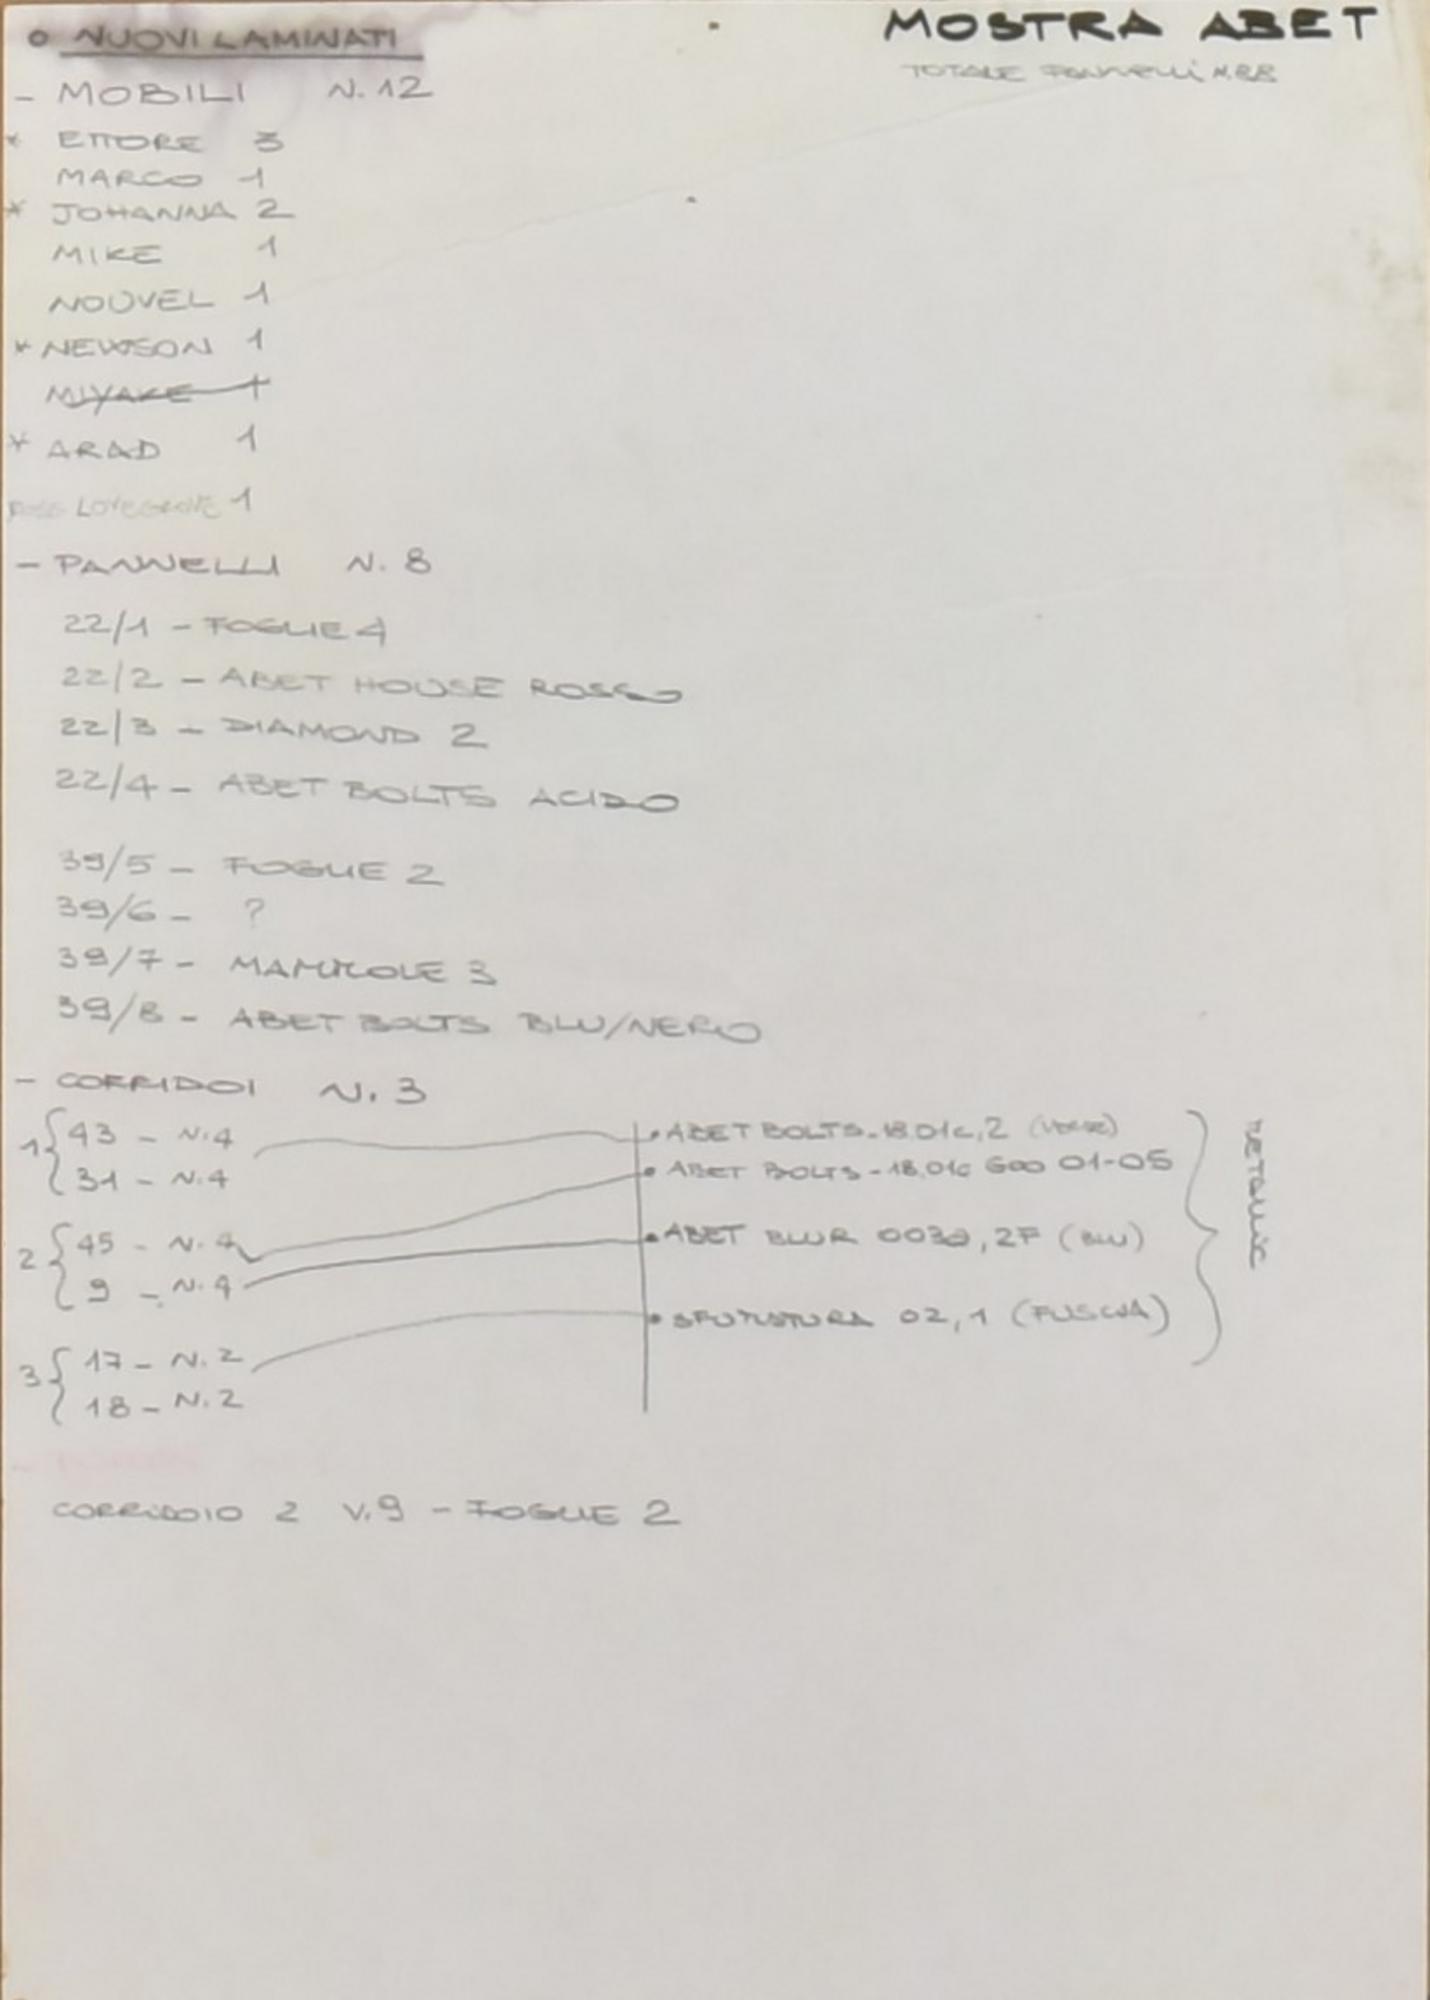 MOSTRA ABET
TOTALE PANNELLI N.88
• NUOVI LAMINATI
- MOBILI N.12
* ETTORE 3
MARCO 1
* JOHANNA 2
MIKE 1
NOUVEL 1
* NEWSON 1
MIYAKE 1
* ARAD 1
ROSS LOVEGROVE 1
- PANNELLI N. 8
22/1 - FOGLIE 4
22/2 - ABET HOUSE ROSSO
22/3 - DIAMOND 2
22/4 - ABET BOLTS ACIDO
39/5 - FOGLIE 2
39/6 - ?
39/7 - 3
39/8 - ABET BOLTS BLU/NERO
- CORRIDOI N. 3
1 { 43 - N.4
31 - N.4
2 { 45 - N.4
9 - N.4
3 { 17 - N.2
18 - N.2
• ABET BOLTS - 18.01c,2
• ABET BOLTS - 18.01c 01-05
• ABET BLUR 003a, 2F (BLU)
• 02,1 (FUSCIA)
METALLIC
CORRIDOIO 2 V.9 - FOGLIE 2